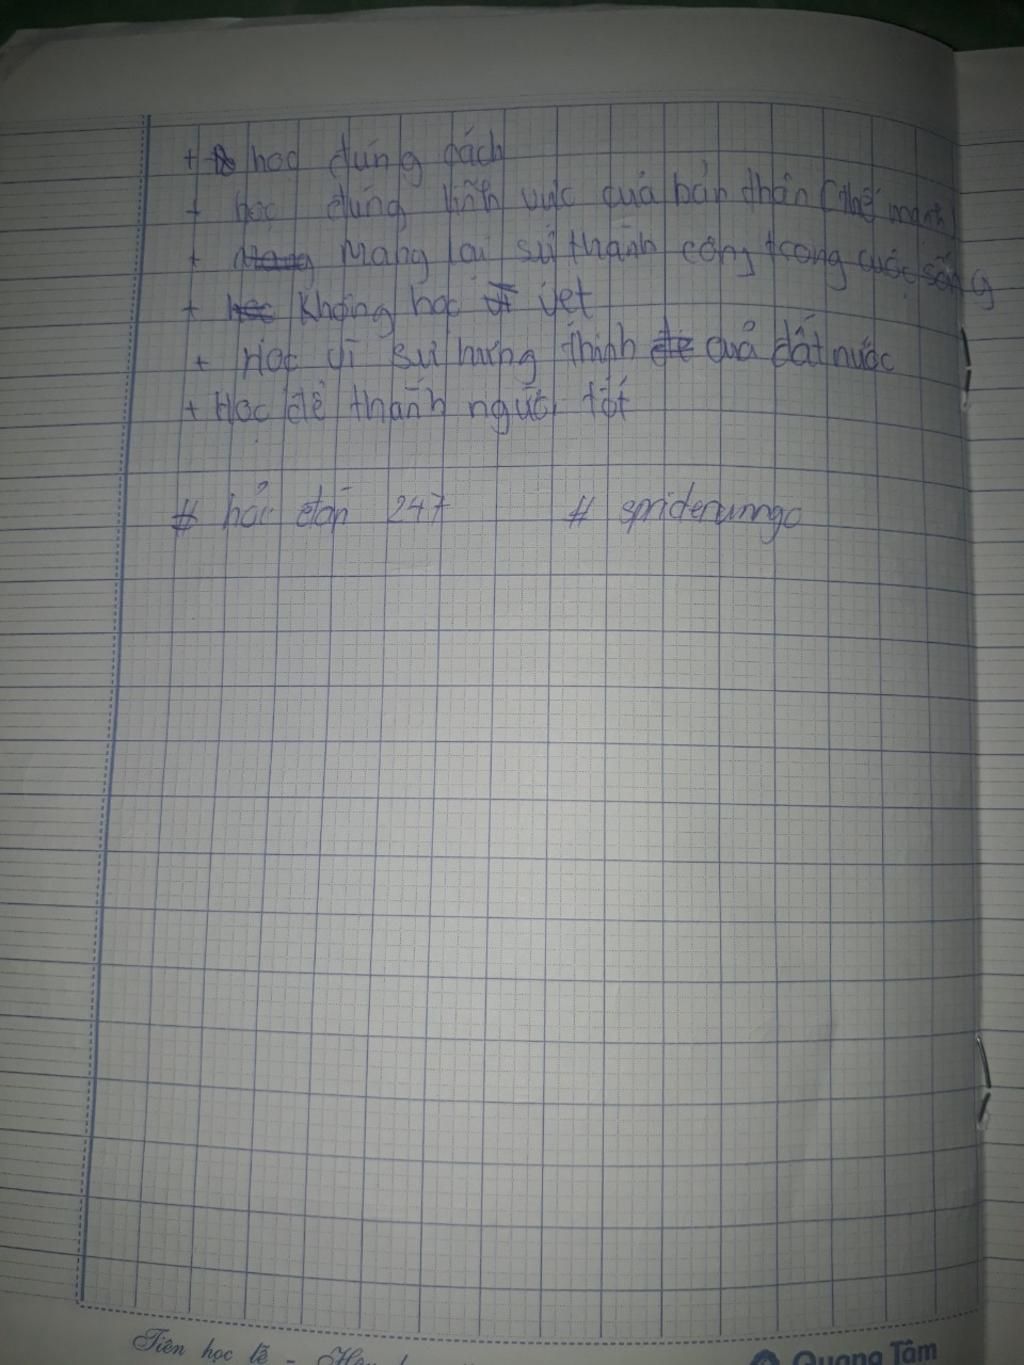 + học đúng cách
+ học đúng lĩnh vực của bản thân (thế mạnh)
+ Mang lại sự thành công trong cuộc sống
+ Không học vẹt
+ Học vì sự hưng thịnh của đất nước
+ Học để thành người tốt
# hỏi đáp 247 # spiderumgo
Tiên học lễ -
Quang Tâm